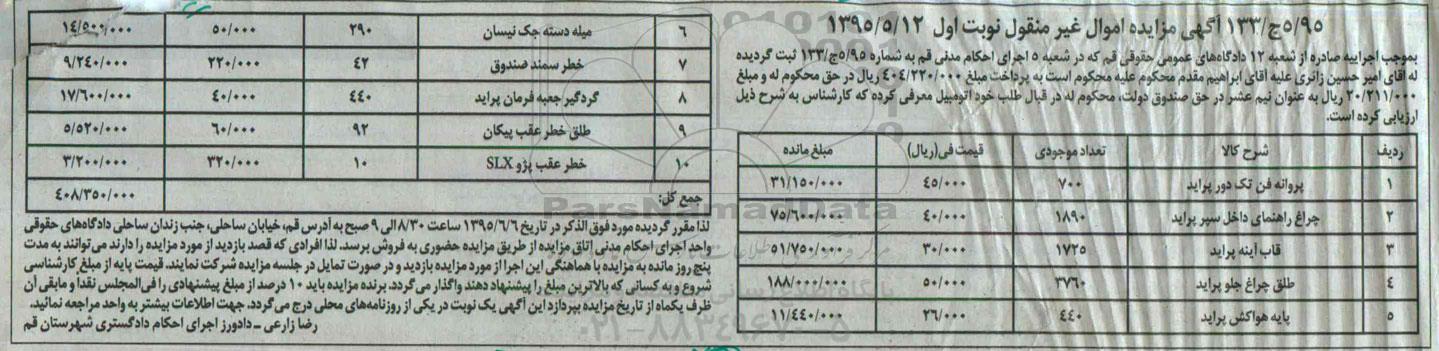 ۹۵/۵ج/۱۳۳ آگهی مزایده اموال غیر منقول نوبت اول ۱۳۹۵/۵/۱۲
بموجب اجراییه صادره از شعبه ۱۲ دادگاه‌های عمومی حقوقی قم که در شعبه ۵ اجرای احکام مدنی قم به شماره ۹۵/۵ج/۱۳۳ ثبت گردیده
له آقای امیر حسین زائری علیه آقای ابراهیم مقدم محکوم علیه محکوم است به پرداخت مبلغ ۴۰۴/۲۲۰/۰۰۰ ریال در حق محکوم له و مبلغ
۲۰/۲۱۱/۰۰۰ ریال به عنوان نیم عشر در حق صندوق دولت، محکوم له در قبال طلب خود اتومبیل معرفی کرده که کارشناس به شرح ذیل
ارزیابی کرده است.
ردیف شرح کالا تعداد موجودی قیمت فی(ریال) مبلغ مانده
۱ پروانه فن تک دور پراید ۷۰۰ ۴۵/۰۰۰ ۳۱/۱۵۰/۰۰۰
۲ چراغ راهنمای داخل سپر پراید ۱۸۹۰ ۴۰/۰۰۰ ۷۵/۶۰۰/۰۰۰
۳ قاب آینه پراید ۱۷۲۵ ۳۰/۰۰۰ ۵۱/۷۵۰/۰۰۰
۴ طلق چراغ جلو پراید ۳۷۶۰ ۵۰/۰۰۰ ۱۸۸/۰۰۰/۰۰۰
۵ پایه هواکش پراید ۴۴۰ ۲۶/۰۰۰ ۱۱/۴۴۰/۰۰۰
۶ میله دسته جک نیسان ۲۹۰ ۵۰/۰۰۰ ۱۴/۵۰۰/۰۰۰
۷ خطر سمند صندوق ۴۲ ۲۲۰/۰۰۰ ۹/۲۴۰/۰۰۰
۸ گردگیر جعبه فرمان پراید ۴۴۰ ۴۰/۰۰۰ ۱۷/۶۰۰/۰۰۰
۹ طلق خطر عقب پیکان ۹۲ ۶۰/۰۰۰ ۵/۵۲۰/۰۰۰
۱۰ خطر عقب پژو SLX ۱۰ ۳۲۰/۰۰۰ ۳/۲۰۰/۰۰۰
جمع کل: ۴۰۸/۳۵۰/۰۰۰
لذا مقرر گردیده مورد فوق الذکر در تاریخ ۱۳۹۵/۶/۶ ساعت ۸/۳۰ الی ۹ صبح به آدرس قم، خیابان ساحلی، جنب زندان ساحلی دادگاه‌های حقوقی
واحد اجرای احکام مدنی اتاق مزایده از طریق مزایده حضوری به فروش برسد. لذا افرادی که قصد بازدید از مورد مزایده را دارند می‌توانند به مدت
پنج روز مانده به مزایده با هماهنگی این اجرا از مورد مزایده بازدید و در صورت تمایل در جلسه مزایده شرکت نمایند. قیمت پایه از مبلغ کارشناسی
شروع و به کسانی که بالاترین مبلغ را پیشنهاد دهند واگذار می‌گردد. برنده مزایده باید ۱۰ درصد از مبلغ پیشنهادی را فی‌المجلس نقدا و مابقی آن
ظرف یکماه از تاریخ مزایده بپردازد این آگهی یک نوبت در یکی از روزنامه‌های محلی درج می‌گردد. جهت اطلاعات بیشتر به واحد مراجعه نمائید.
رضا زارعی ـ دادورز اجرای احکام دادگستری شهرستان قم
ParsNamadData
۰۲۱-۸۸۳۴۹۶۷۰-۵